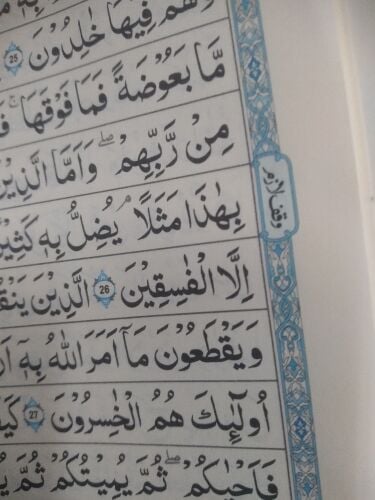 وَهُمْ فِيْهَا خٰلِدُوْنَ ۝25
مَّا بَعُوْضَةً فَمَا فَوْقَهَا ۚ
مِنْ رَّبِّهِمْ ۖ وَاَمَّا الَّذِيْنَ
بِهٰذَا مَثَلًا ۘ يُضِلُّ بِهٖ كَثِيْرًا
وقف لازم
اِلَّا الْفٰسِقِيْنَ ۝26 الَّذِيْنَ
وَيَقْطَعُوْنَ مَآ اَمَرَ اللّٰهُ بِهٖٓ اَنْ
اُولٰٓئِكَ هُمُ الْخٰسِرُوْنَ ۝27
فَاَحْيَاكُمْ ۖ ثُمَّ يُمِيْتُكُمْ ثُمَّ